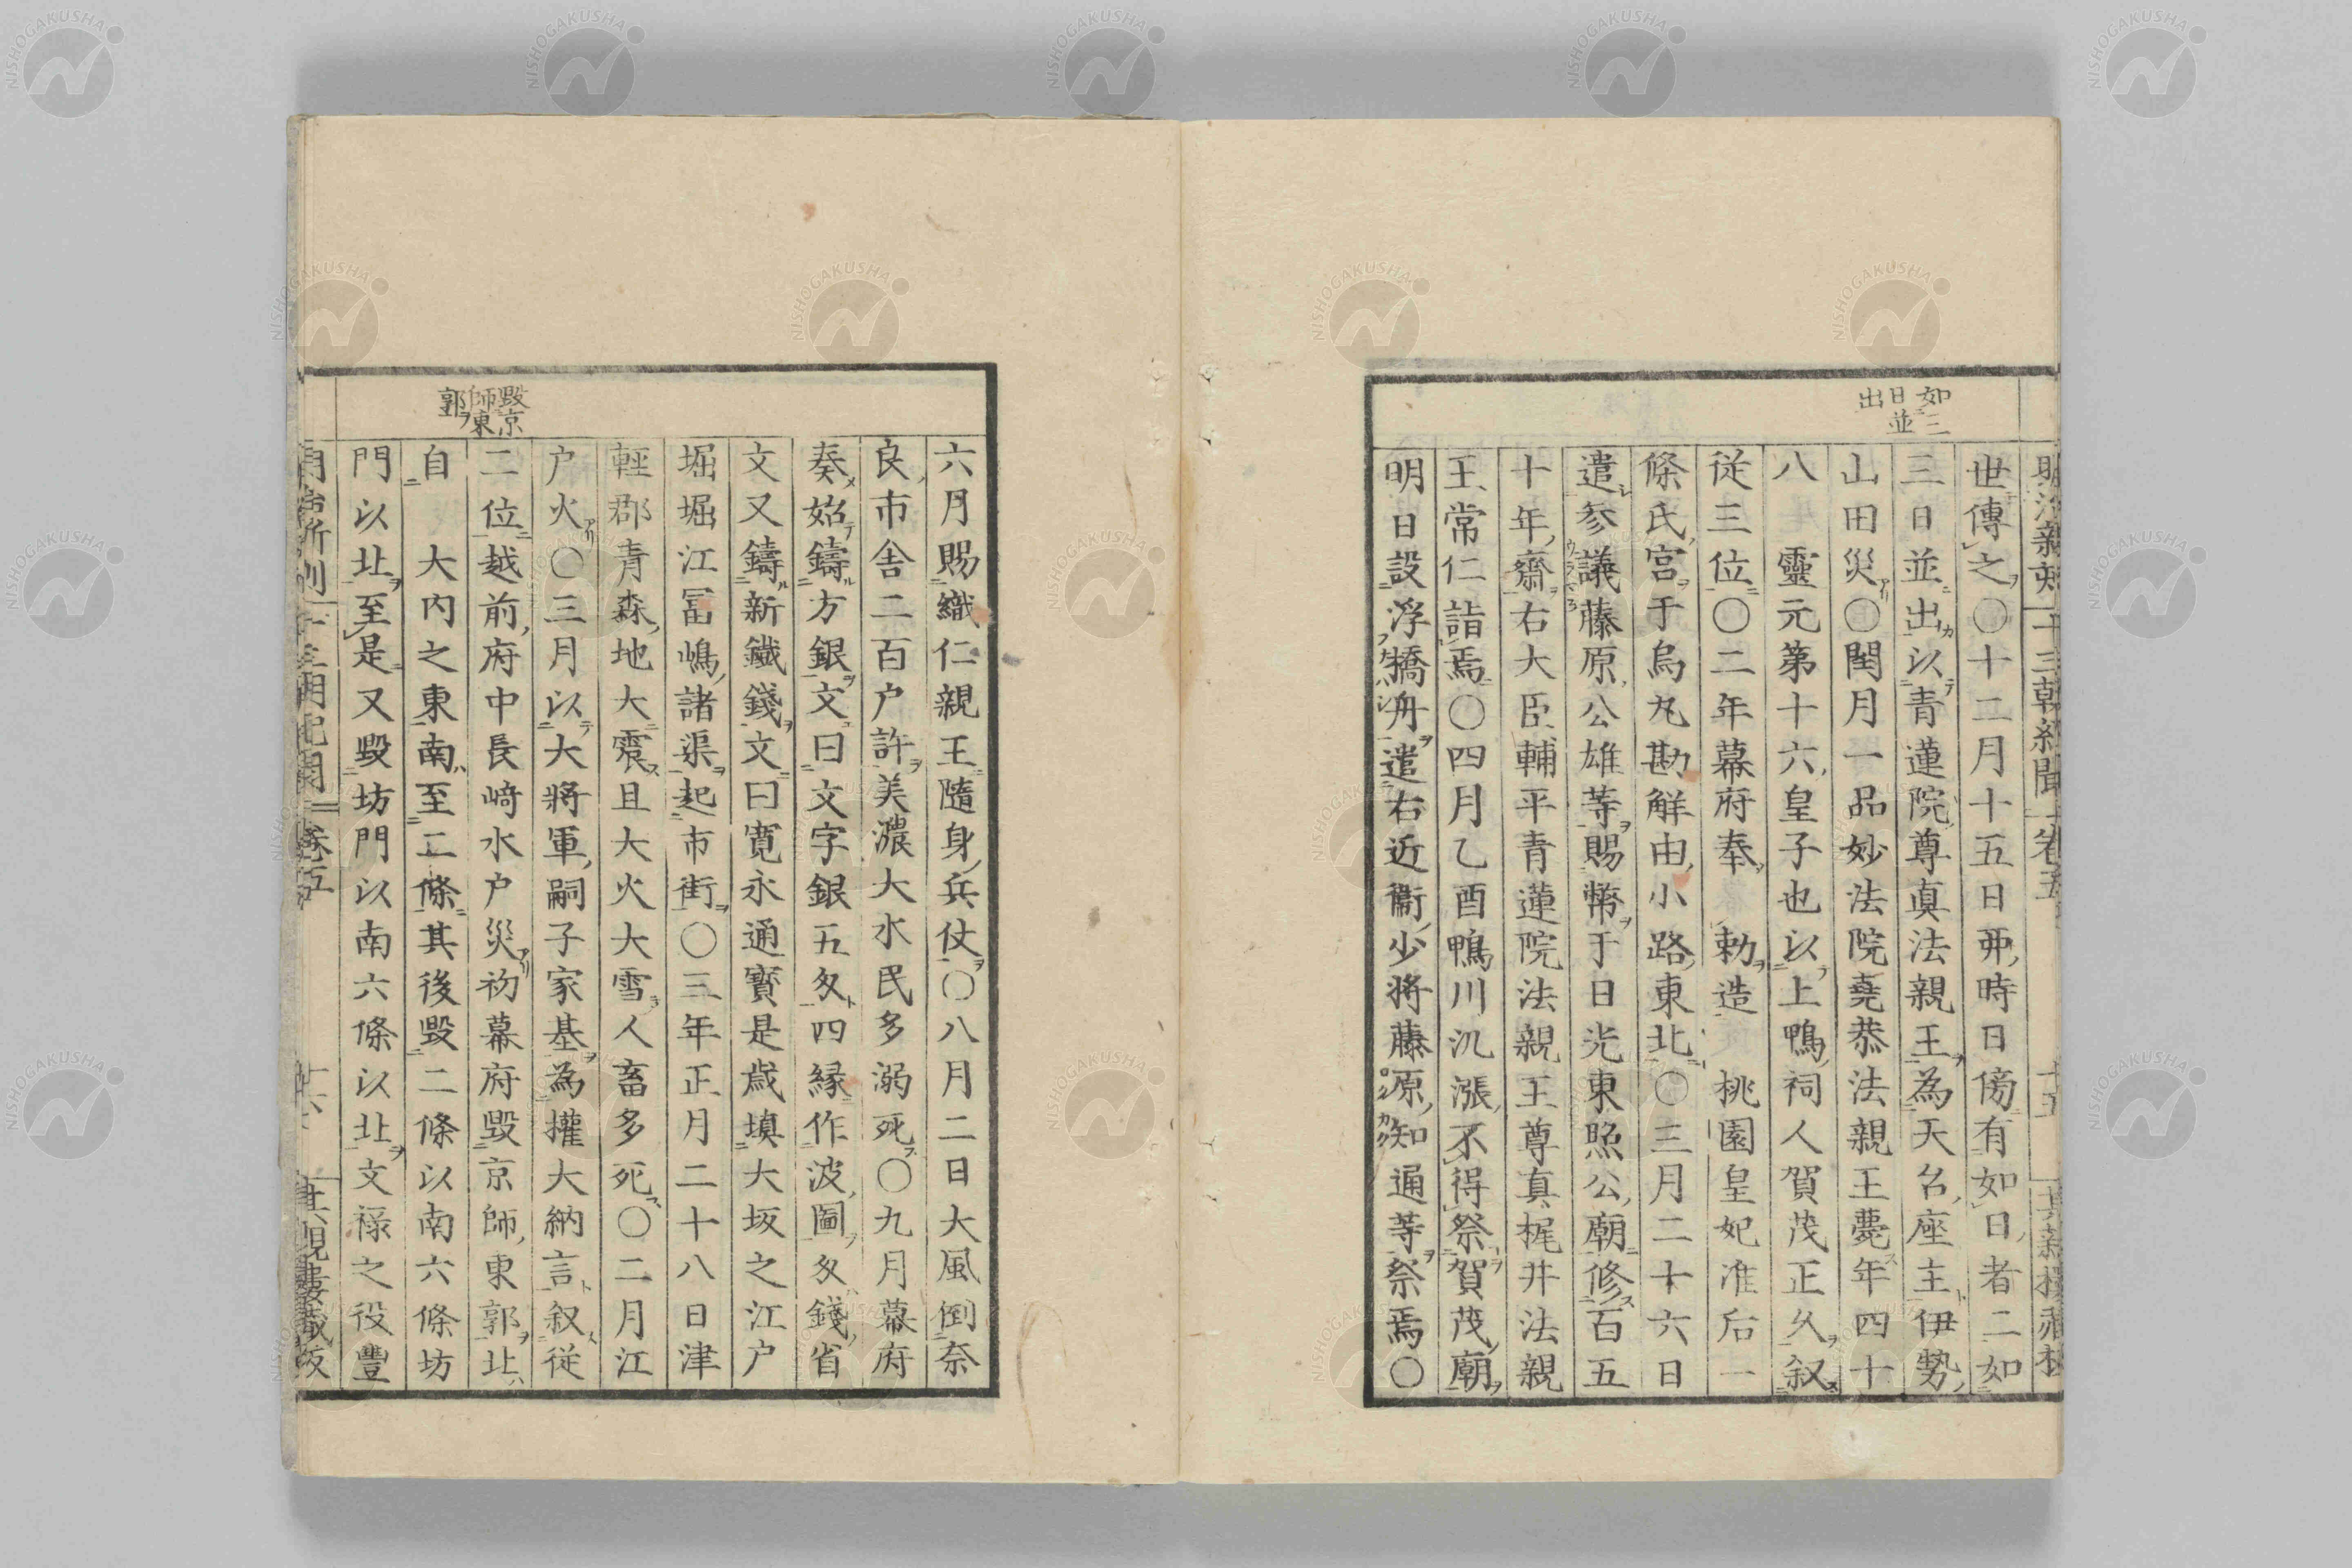 如三
日並
出
世傳之〇十二月十五日乖時日傍有如日者二如
三日並出以青蓮院尊真法親王為天台座主伊勢
山田災〇閏月一品妙法院堯恭法親王薨年四十
八　靈元第十六皇子也以上鴨祠人賀茂正久叙
従三位〇二年幕府奉　勅造　桃園皇妃准后一
條氏宮于烏丸勘解由小路東北〇三月二十六日
遣参議藤原公雄等賜幣于日光東照公廟修百五
十年齋右大臣輔平青蓮院法親王尊真梶井法親
王常仁詣焉〇四月乙酉鴨川汎漲不得祭賀茂廟
明日設浮橋舟遣右近衛少将藤原知通等祭焉〇
六月賜織仁親王隨身兵仗〇八月二日大風倒奈
良市舎二百户許美濃大水民多溺死〇九月幕府
奏始鑄方銀文曰文字銀五匁四縁作波圖匁錢省
文又鑄新鐵錢文曰寛永通寳是歳填大坂之江户
堀堀江冨嶋諸渠起市街〇三年正月二十八日津
輕郡青森地大震且大火大雪人畜多死〇二月江
户火〇三月以大將軍嗣子家基為權大納言叙従
二位越前府中長﨑水户災初幕府毀京師東郭北
自　大内之東南至二條其後毀二條以南六條坊
門以北至是又毀坊門以南六條以北文禄之役豐
毀京
師東
郭
卷五
NISHOGAKUSHA